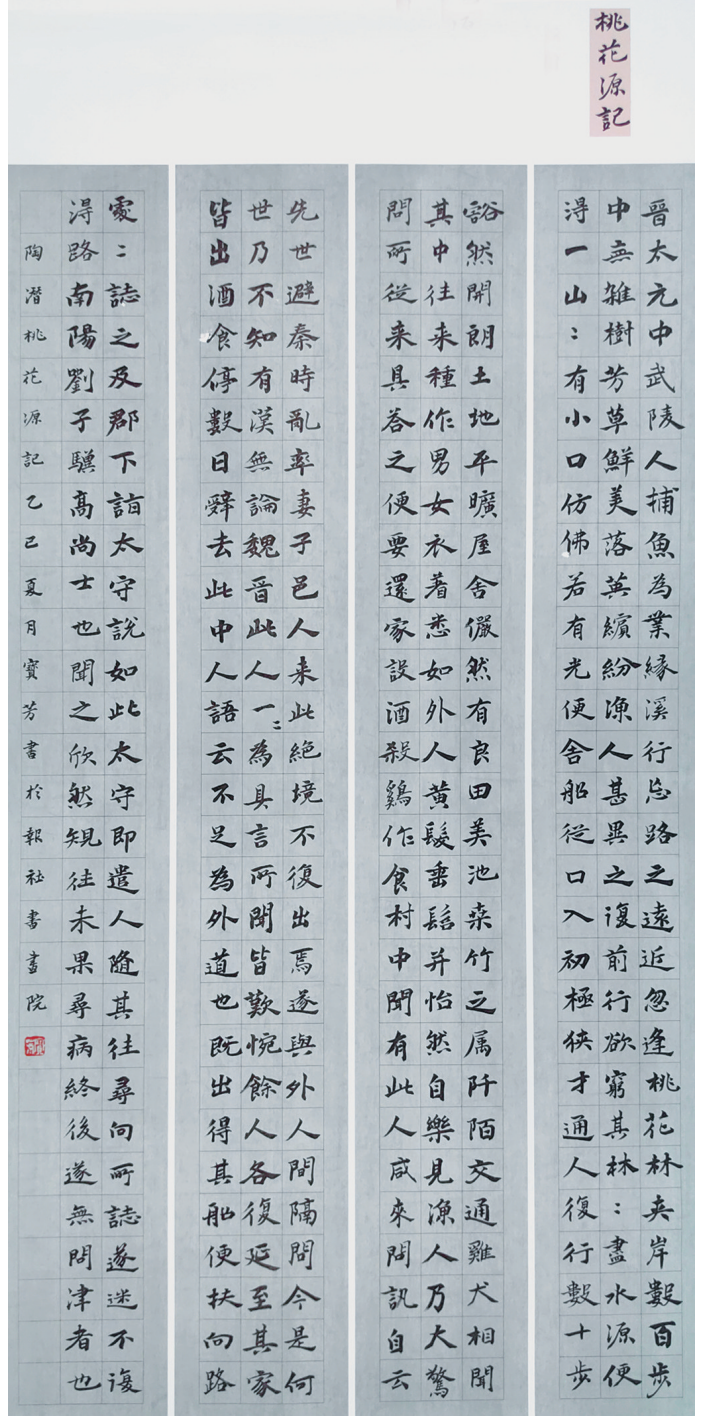 桃花源記
晉太元中武陵人捕魚為業緣溪行忘路之遠近忽逢桃花林夾岸數百步
中無雜樹芳草鮮美落英繽紛漁人甚異之復前行欲窮其林：盡水源便
得一山：有小口仿佛若有光便舍船從口入初極狹才通人復行數十步
豁然開朗土地平曠屋舍儼然有良田美池桑竹之属阡陌交通雞犬相聞
其中往来種作男女衣著悉如外人黃髮垂髫并怡然自樂見漁人乃大驚
問所從来具答之便要還家設酒殺鷄作食村中聞有此人咸來問訊自云
先世避秦時亂率妻子邑人来此絕境不復出焉遂與外人間隔問今是何
世乃不知有漢無論魏晉此人一：為具言所聞皆歎惋餘人各復延至其家
皆出酒食停數日辭去此中人語云不足為外道也既出得其船便扶向路
處：誌之及郡下詣太守說如此太守即遣人隨其往尋向所誌遂迷不復
得路南陽劉子驥高尚士也聞之欣然規往未果尋病終後遂無問津者也
陶潛桃花源記乙巳夏月寶芳書於報社書畫院